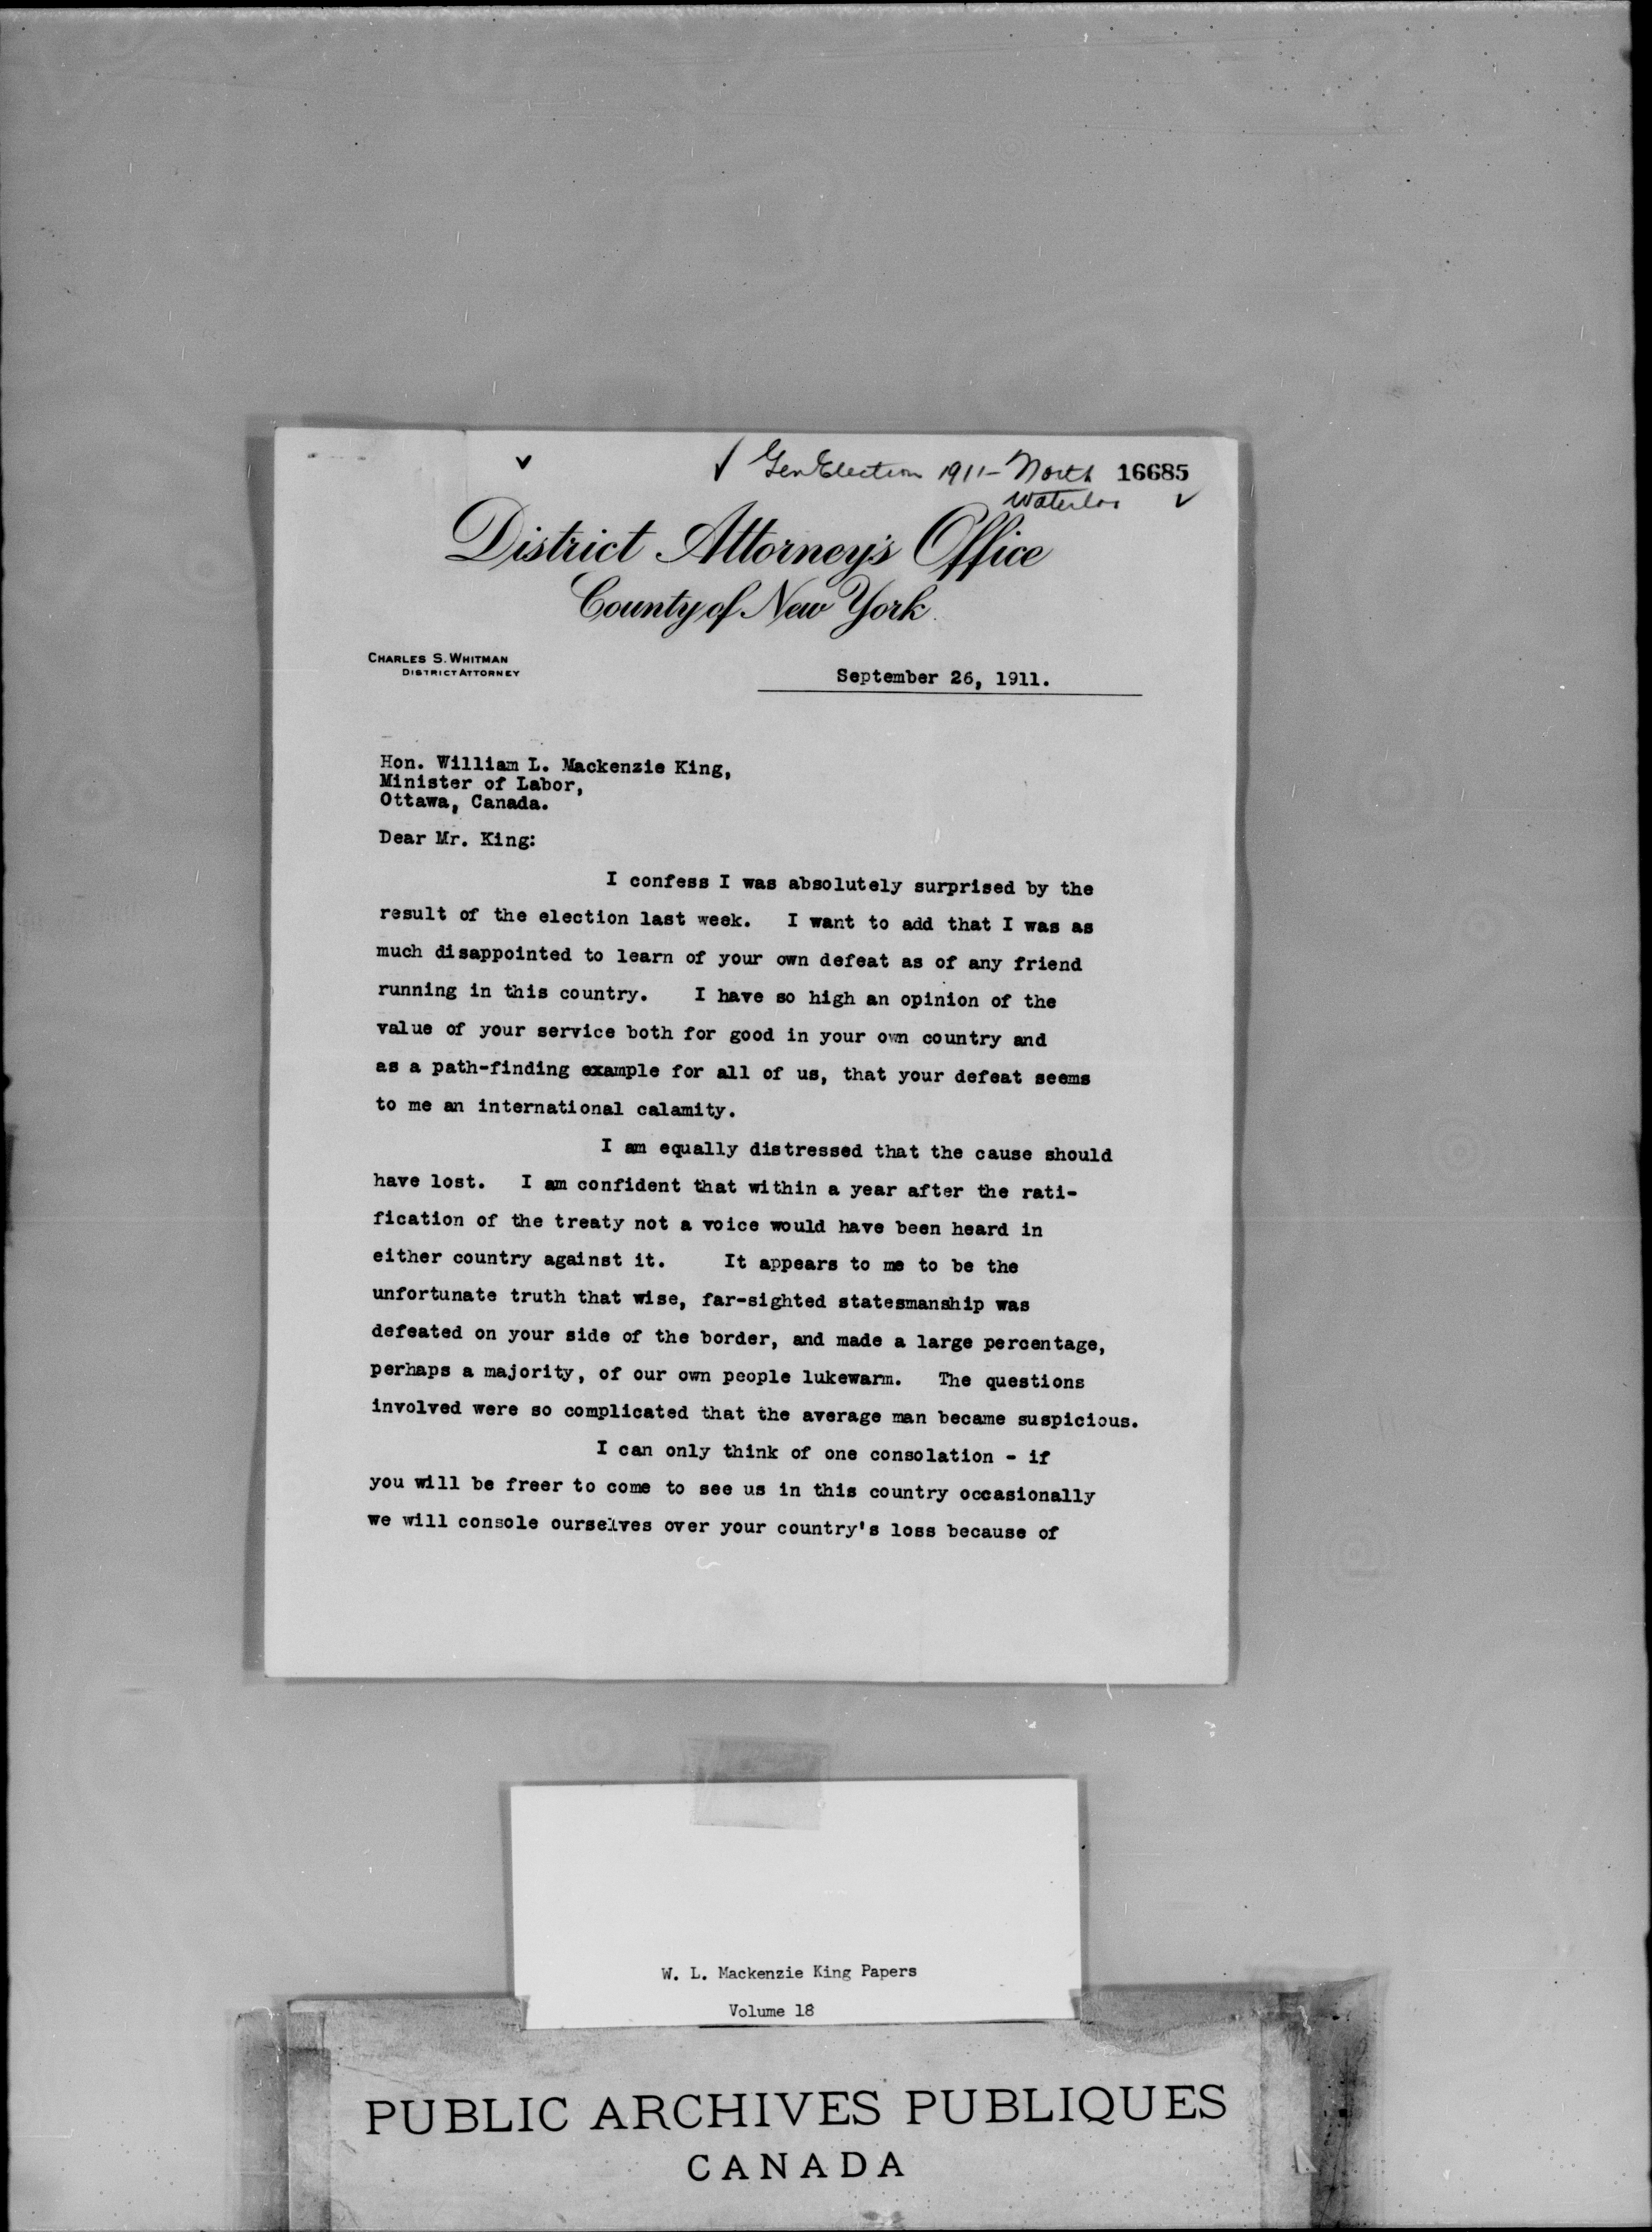 ✓ ✓ Gen Election 1911- North 16685
Waterloo ✓
District Attorney's Office
County of New York.
CHARLES S. WHITMAN
DISTRICT ATTORNEY
September 26, 1911.
Hon. William L. Mackenzie King,
Minister of Labor,
Ottawa, Canada.
Dear Mr. King:
I confess I was absolutely surprised by the
result of the election last week. I want to add that I was as
much disappointed to learn of your own defeat as of any friend
running in this country. I have so high an opinion of the
value of your service both for good in your own country and
as a path-finding example for all of us, that your defeat seems
to me an international calamity.
I am equally distressed that the cause should
have lost. I am confident that within a year after the rati-
fication of the treaty not a voice would have been heard in
either country against it. It appears to me to be the
unfortunate truth that wise, far-sighted statesmanship was
defeated on your side of the border, and made a large percentage,
perhaps a majority, of our own people lukewarm. The questions
involved were so complicated that the average man became suspicious.
I can only think of one consolation - if
you will be freer to come to see us in this country occasionally
we will console ourselves over your country's loss because of
W. L. Mackenzie King Papers
Volume 18
PUBLIC ARCHIVES PUBLIQUES
CANADA